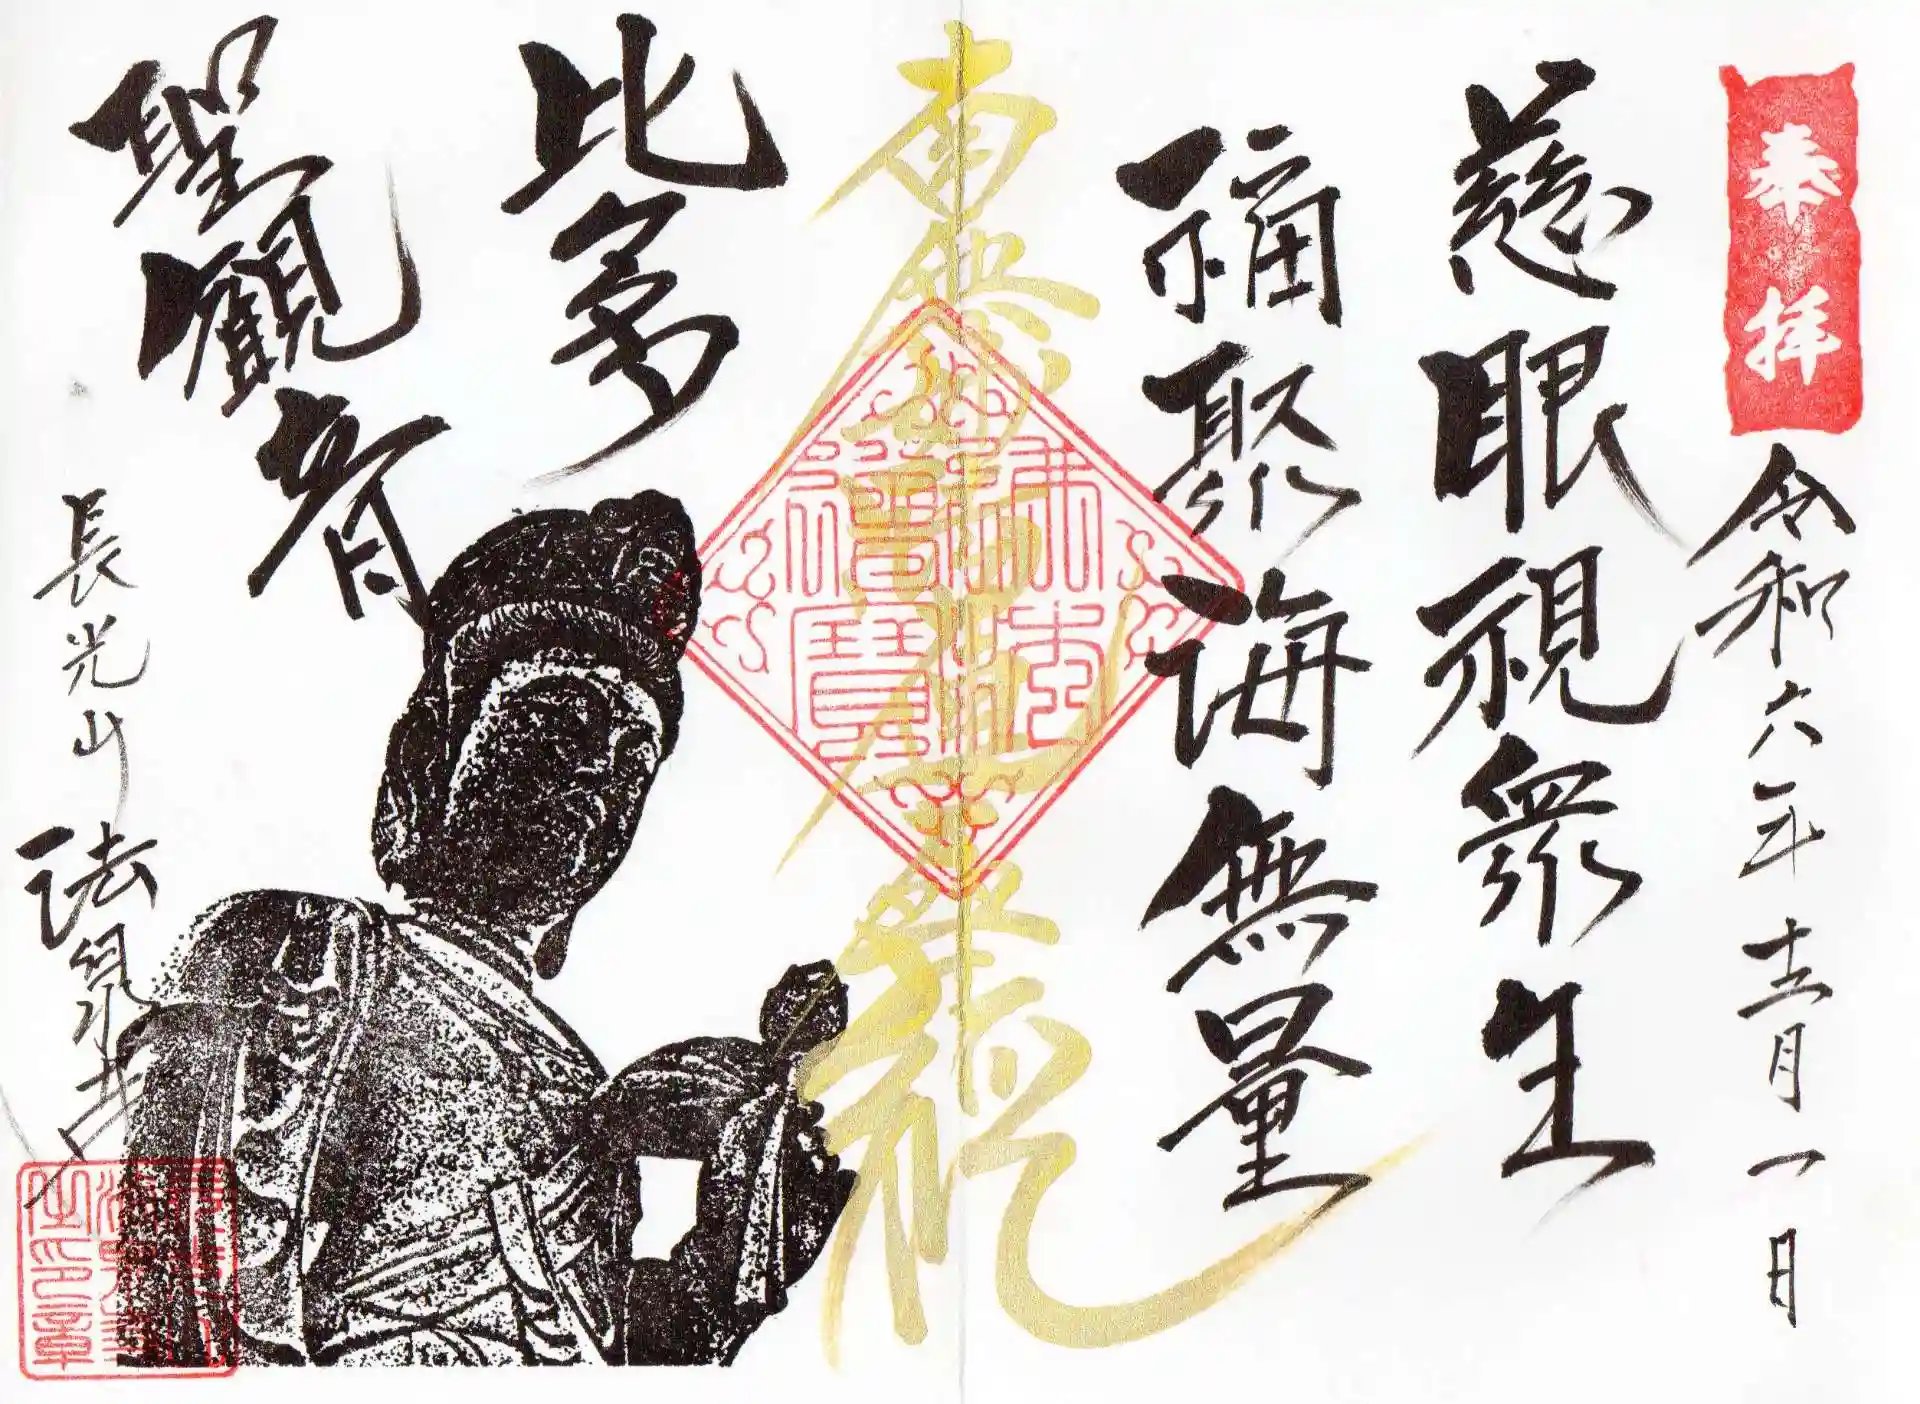 奉拝
令和六年十二月一日
慈眼視衆生
福聚海無量
南無
佛法僧寶
比多
聖觀音
長光山